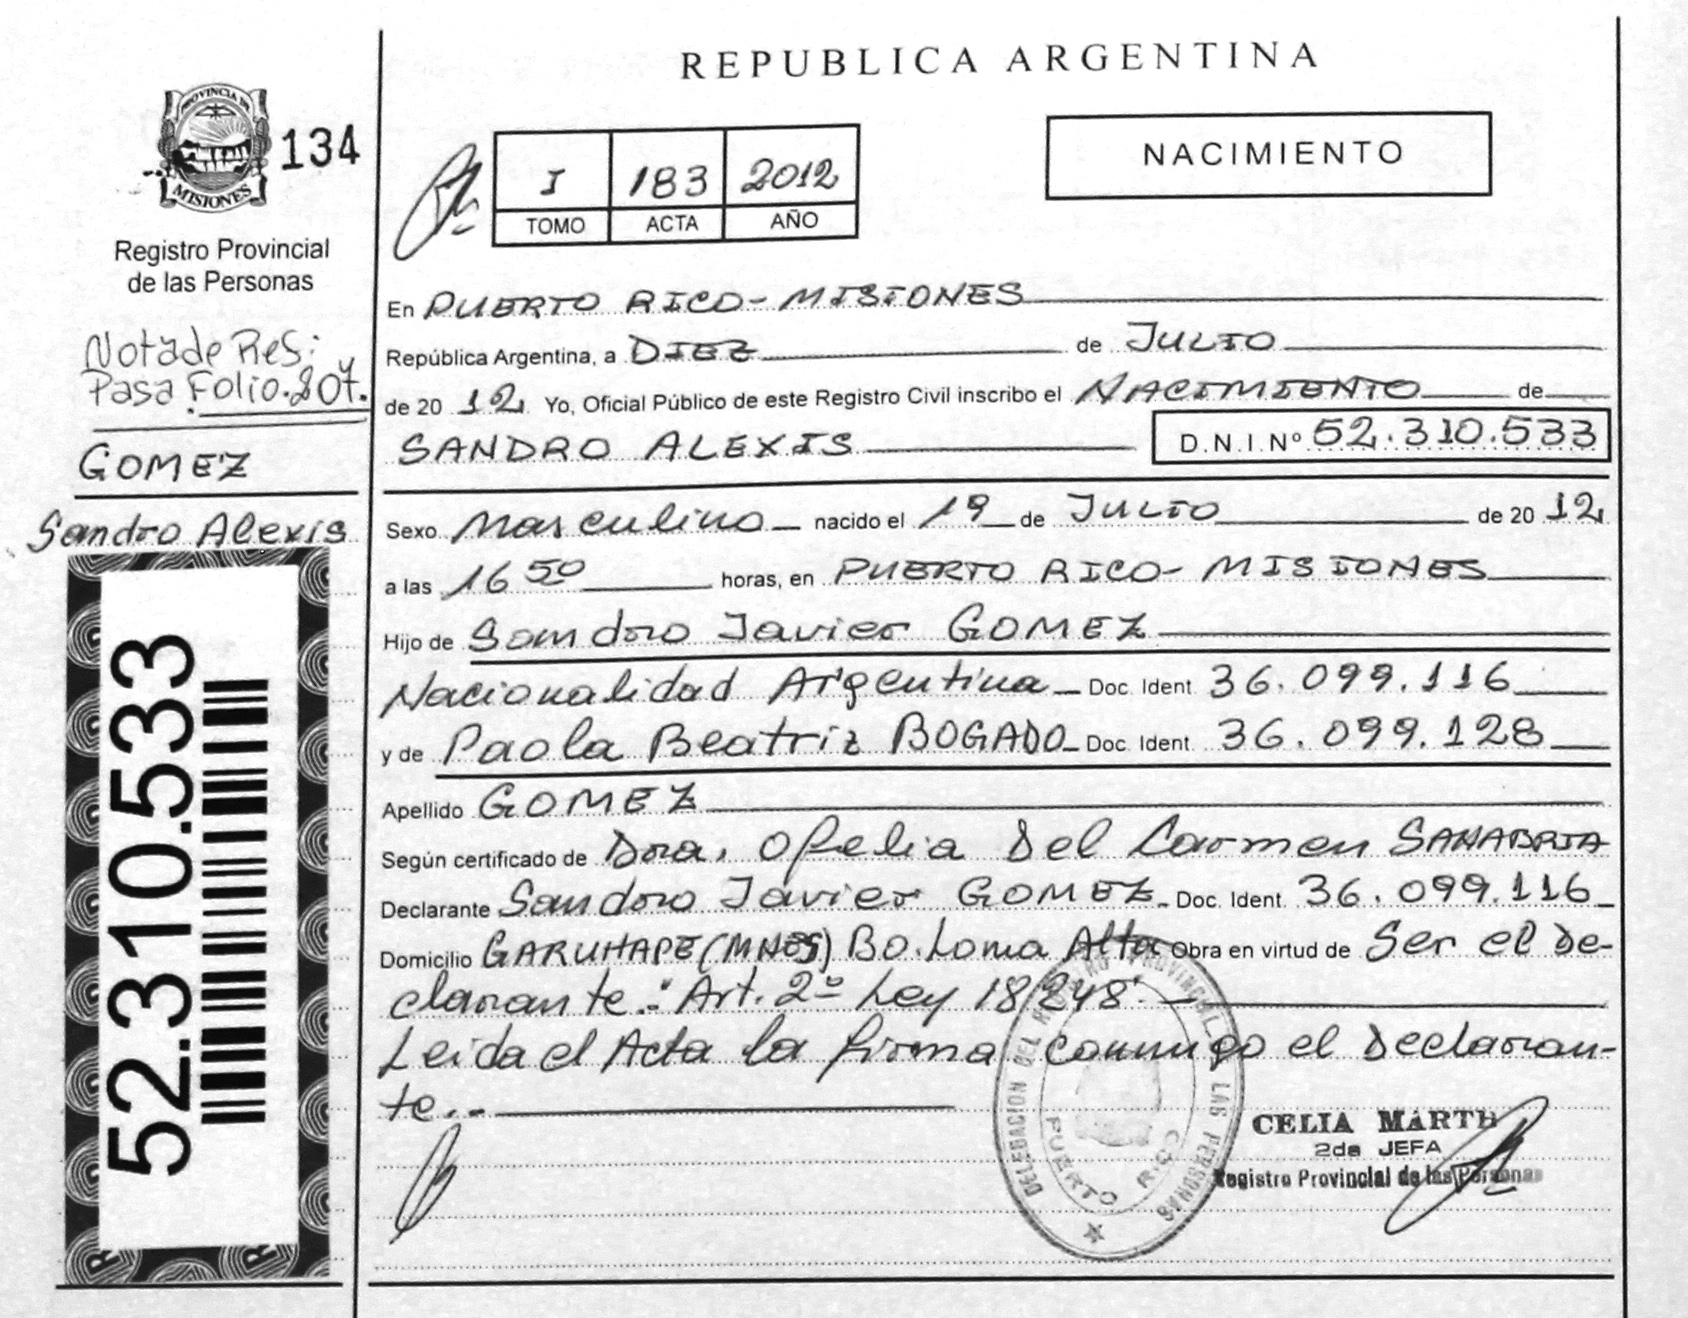 REPUBLICA ARGENTINA
PROVINCIA DE
MISIONES
134
Registro Provincial
de las Personas
I 183 2012
TOMO ACTA AÑO
NACIMIENTO
Nota de Res:
Pasa Folio. 207.
GOMEZ
Sandro Alexis
52.310.533
En PUERTO RICO - MISIONES
República Argentina, a DIEZ de JULIO
de 20 12 Yo, Oficial Público de este Registro Civil inscribo el NACIMIENTO de
SANDRO ALEXIS D.N.I. Nº 52.310.533
Sexo Masculino nacido el 19 de JULIO de 20 12
a las 16 50 horas, en PUERTO RICO - MISIONES
Hijo de Sandro Javier GOMEZ
Nacionalidad Argentina Doc. Ident 36.099.116
y de Paola Beatriz BOGADO Doc. Ident. 36.099.128
Apellido GOMEZ
Según certificado de Dra. Ofelia Del Carmen SANABRIA
Declarante Sandro Javier GOMEZ Doc. Ident. 36.099.116
Domicilio GARUHAPE (MNES) Bo. Loma Alta Obra en virtud de Ser el De-
clarante.- Art. 2º Ley 18248.-
Leida el Acta la firma conmigo el Declaran-
te..-
DELEGACION DEL REGISTRO PROVINCIAL DE LAS PERSONAS
PUERTO RICO
CELIA MARTH
2da JEFA
Registro Provincial de las Personas